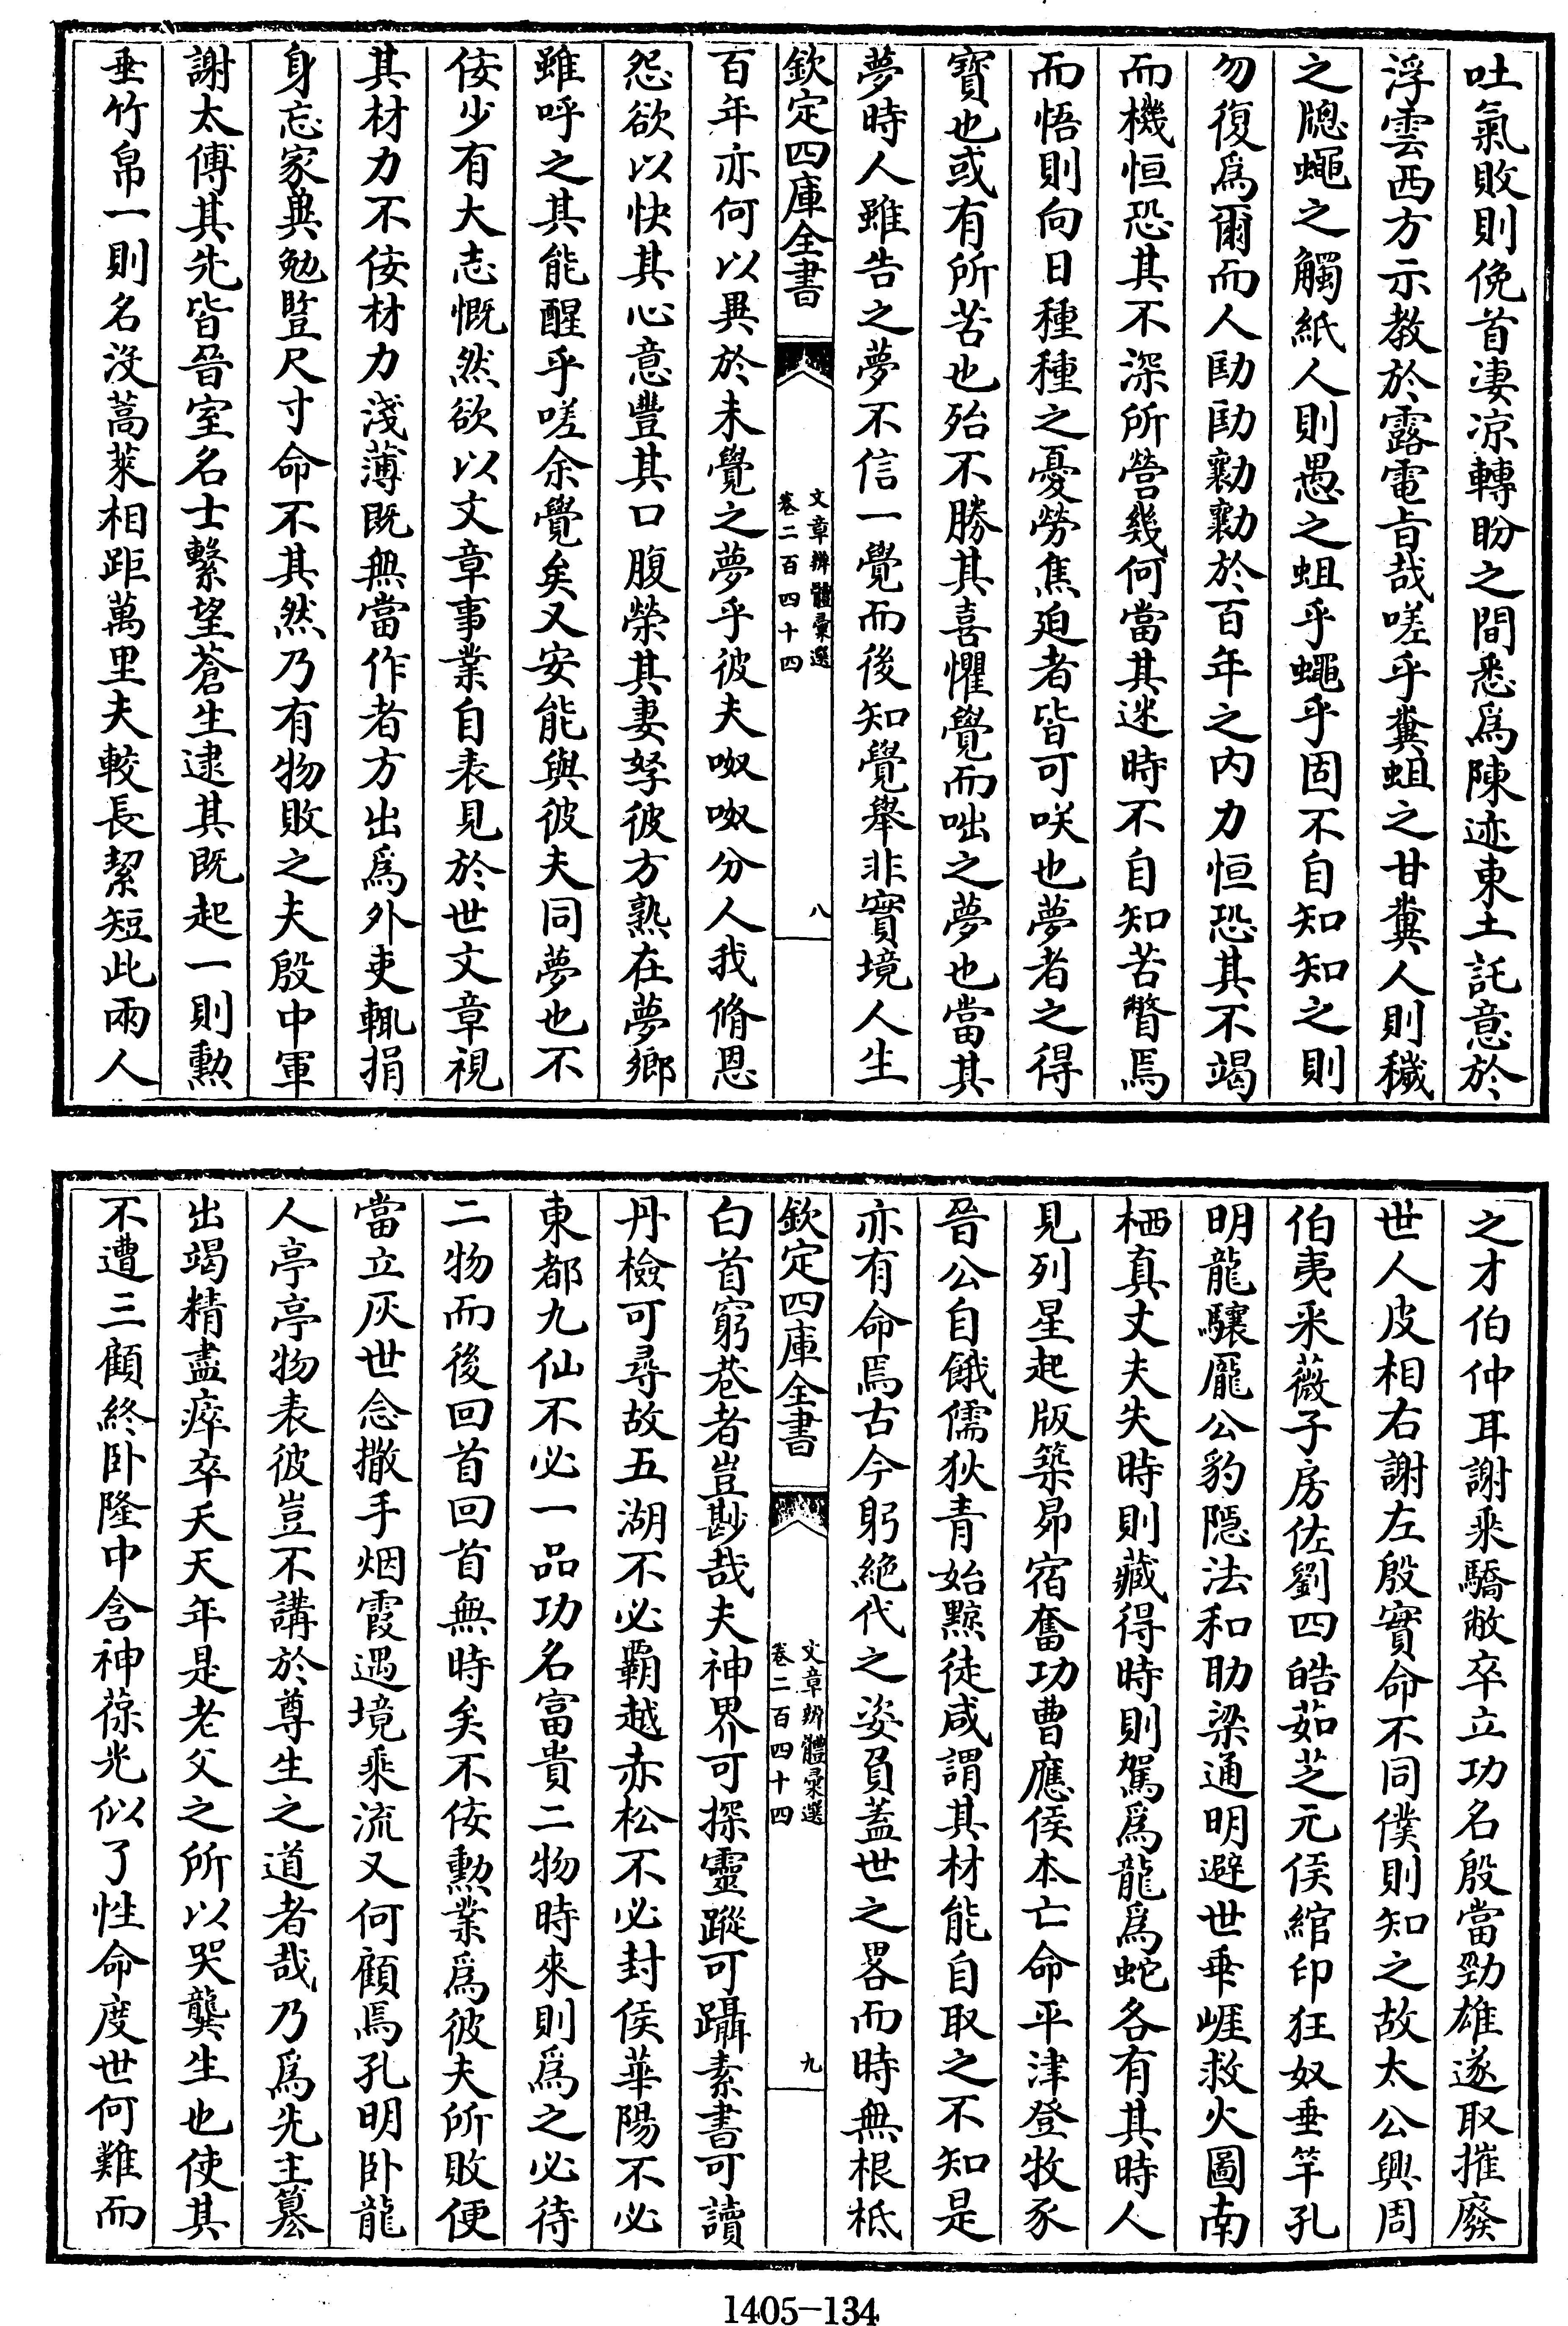 吐氣敗則俛首凄凉轉盼之間悉爲陳迹東土託意於
浮雲西方示教於露電㫖哉嗟乎糞蛆之甘糞人則穢
之牕蠅之觸紙人則愚之蛆乎蠅乎固不自知知之則
勿復爲爾而人劻劻勷勷於百年之内力恒恐其不竭
而機恒恐其不深所營幾何當其迷時不自知苦瞥焉
而悟則向日種種之憂勞焦廹者皆可咲也夢者之得
寳也或有所苦也殆不勝其喜懼覺而咄之夢也當其
夢時人雖告之夢不信一覺而後知覺舉非實境人生
欽定四庫全書
文章辨體彚選
卷二百四十四
八
百年亦何以異於未覺之夢乎彼夫呶呶分人我脩恩
怨欲以快其心意豐其口腹榮其妻孥彼方熟在夢鄉
雖呼之其能醒乎嗟余覺矣又安能與彼夫同夢也不
佞少有大志慨然欲以文章事業自表見於世文章視
其材力不佞材力淺薄既無當作者方出爲外吏輒捐
身忘家與勉豎尺寸命不其然乃有物敗之夫殷中軍
謝太傅其先皆晉室名士繫望蒼生逮其既起一則勲
垂竹帛一則名没蒿萊相距萬里夫較長絜短此兩人
之才伯仲耳謝乘驕敝卒立功名殷當勁雄遂取摧廢
世人皮相右謝左殷實命不同僕則知之故太公興周
伯夷采薇子房佐劉四皓茹芝元侯綰印狂奴垂竿孔
明龍驤龎公豹隠法和助梁通明避世乖崖救火圖南
栖真丈夫失時則藏得時則駕爲龍爲蛇各有其時人
見列星起版築昴宿奮功曹應侯本亡命平津登牧豕
晉公自餓儒狄青始黥徒咸謂其材能自取之不知是
亦有命焉古今躬絶代之姿負蓋世之畧而時無根柢
欽定四庫全書
文章辨體彚選
卷二百四十四
九
白首窮巷者豈尠哉夫神界可探靈蹤可躡素書可讀
丹檢可尋故五湖不必覇越赤松不必封侯華陽不必
東都九仙不必一品功名富貴二物時來則爲之必待
二物而後回首回首無時矣不佞勲業爲彼夫所敗便
當立灰世念撒手烟霞遇境乘流又何顧焉孔明卧龍
人亭亭物表彼豈不講於尊生之道者哉乃爲先主篡
出竭精盡瘁卒夭天年是老父之所以哭龔生也使其
不遭三顧終卧隆中含神葆光似了性命度世何難而
1405-134